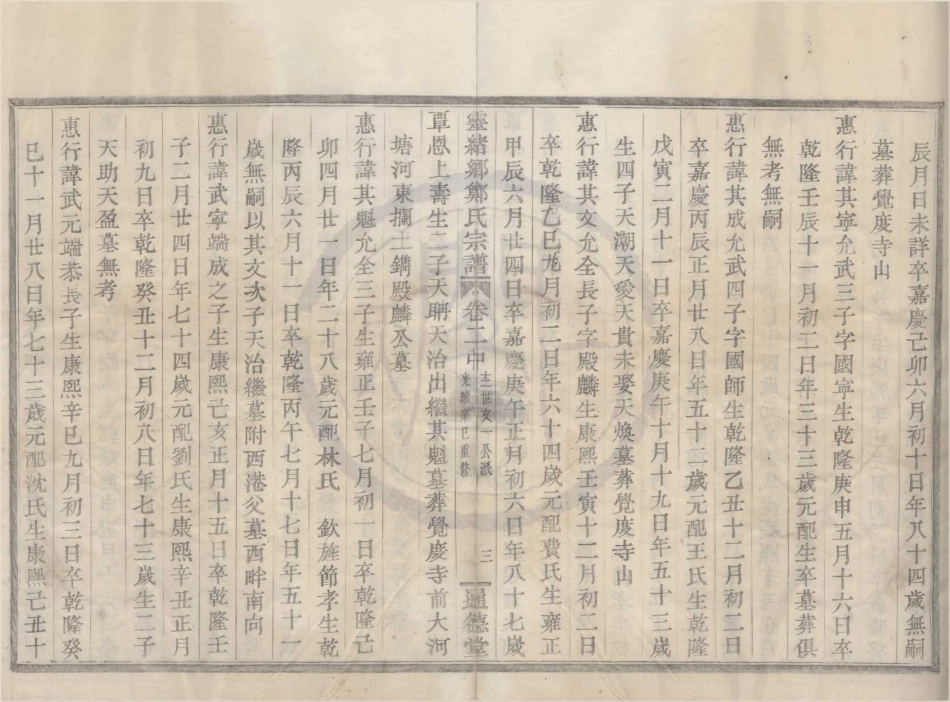 辰月日未詳卒嘉慶己卯六月初十日年八十四歲無嗣
墓葬覺度寺山
惠行諱其寧允武三子字國寧生乾隆庚申五月十六日卒
乾隆壬辰十一月初二日年三十三歲元配生卒墓葬俱
無考無嗣
惠行諱其成允武四子字國師生乾隆乙丑十二月初二日
卒嘉慶丙辰正月廿八日年五十三歲元配王氏生乾隆
戊寅二月十一日卒嘉慶庚午十月十九日年五十三歲
生四子天潮天愛天貴未娶天煥墓葬覺度寺山
惠行諱其文允全長子字殿麟生康熙壬寅十二月初二日
卒乾隆乙巳九月初二日年六十四歲元配費氏生雍正
甲辰六月廿四日卒嘉慶庚午正月初六日年八十七歲
靈緒鄉鄭氏宗譜 卷二中 三 通德堂
光緒辛巳重修
覃恩上壽生二子天聃天治出繼其魁墓葬覺度寺前大河
塘河東攔土鐫殿麟公墓
惠行諱其魁允全三子生雍正壬子七月初一日卒乾隆己
卯四月廿一日年二十八歲元配林氏 欽旌節孝生乾
隆丙辰六月十一日卒乾隆丙午七月十七日年五十一
歲無嗣以其文次子天治繼墓附西港父墓西畔南向
惠行諱武寧端成之子生康熙己亥正月十五日卒乾隆壬
子二月廿四日年七十四歲元配劉氏生康熙辛丑正月
初九日卒乾隆癸丑十二月初八日年七十三歲生二子
天助天盈墓無考
惠行諱武元端恭長子生康熙辛巳九月初三日卒乾隆癸
巳十一月廿八日年七十三歲元配沈氏生康熙己丑十